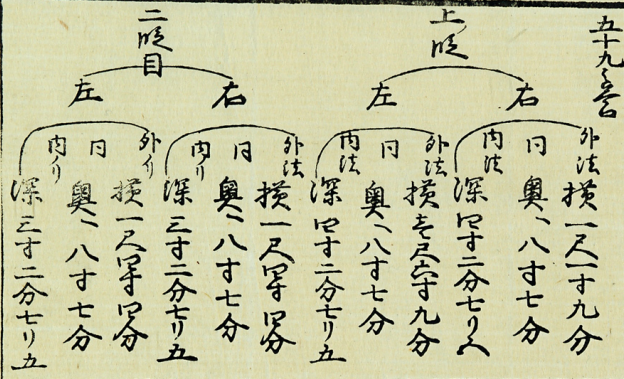 五十九番
上段
右
外法 横一尺一寸九分
同 奥、八寸七分
内法 深四寸二分七リ
左
外法 横壱尺六寸九分
同 奥、八寸七分
内法 深四寸二分七リ五
二段目
右
外法 横一尺四寸四分
同 奥、八寸七分
内リ 深三寸二分七リ五
左
外リ 横一尺四寸四分
同 奥、八寸七分
内リ 深三寸二分七リ五